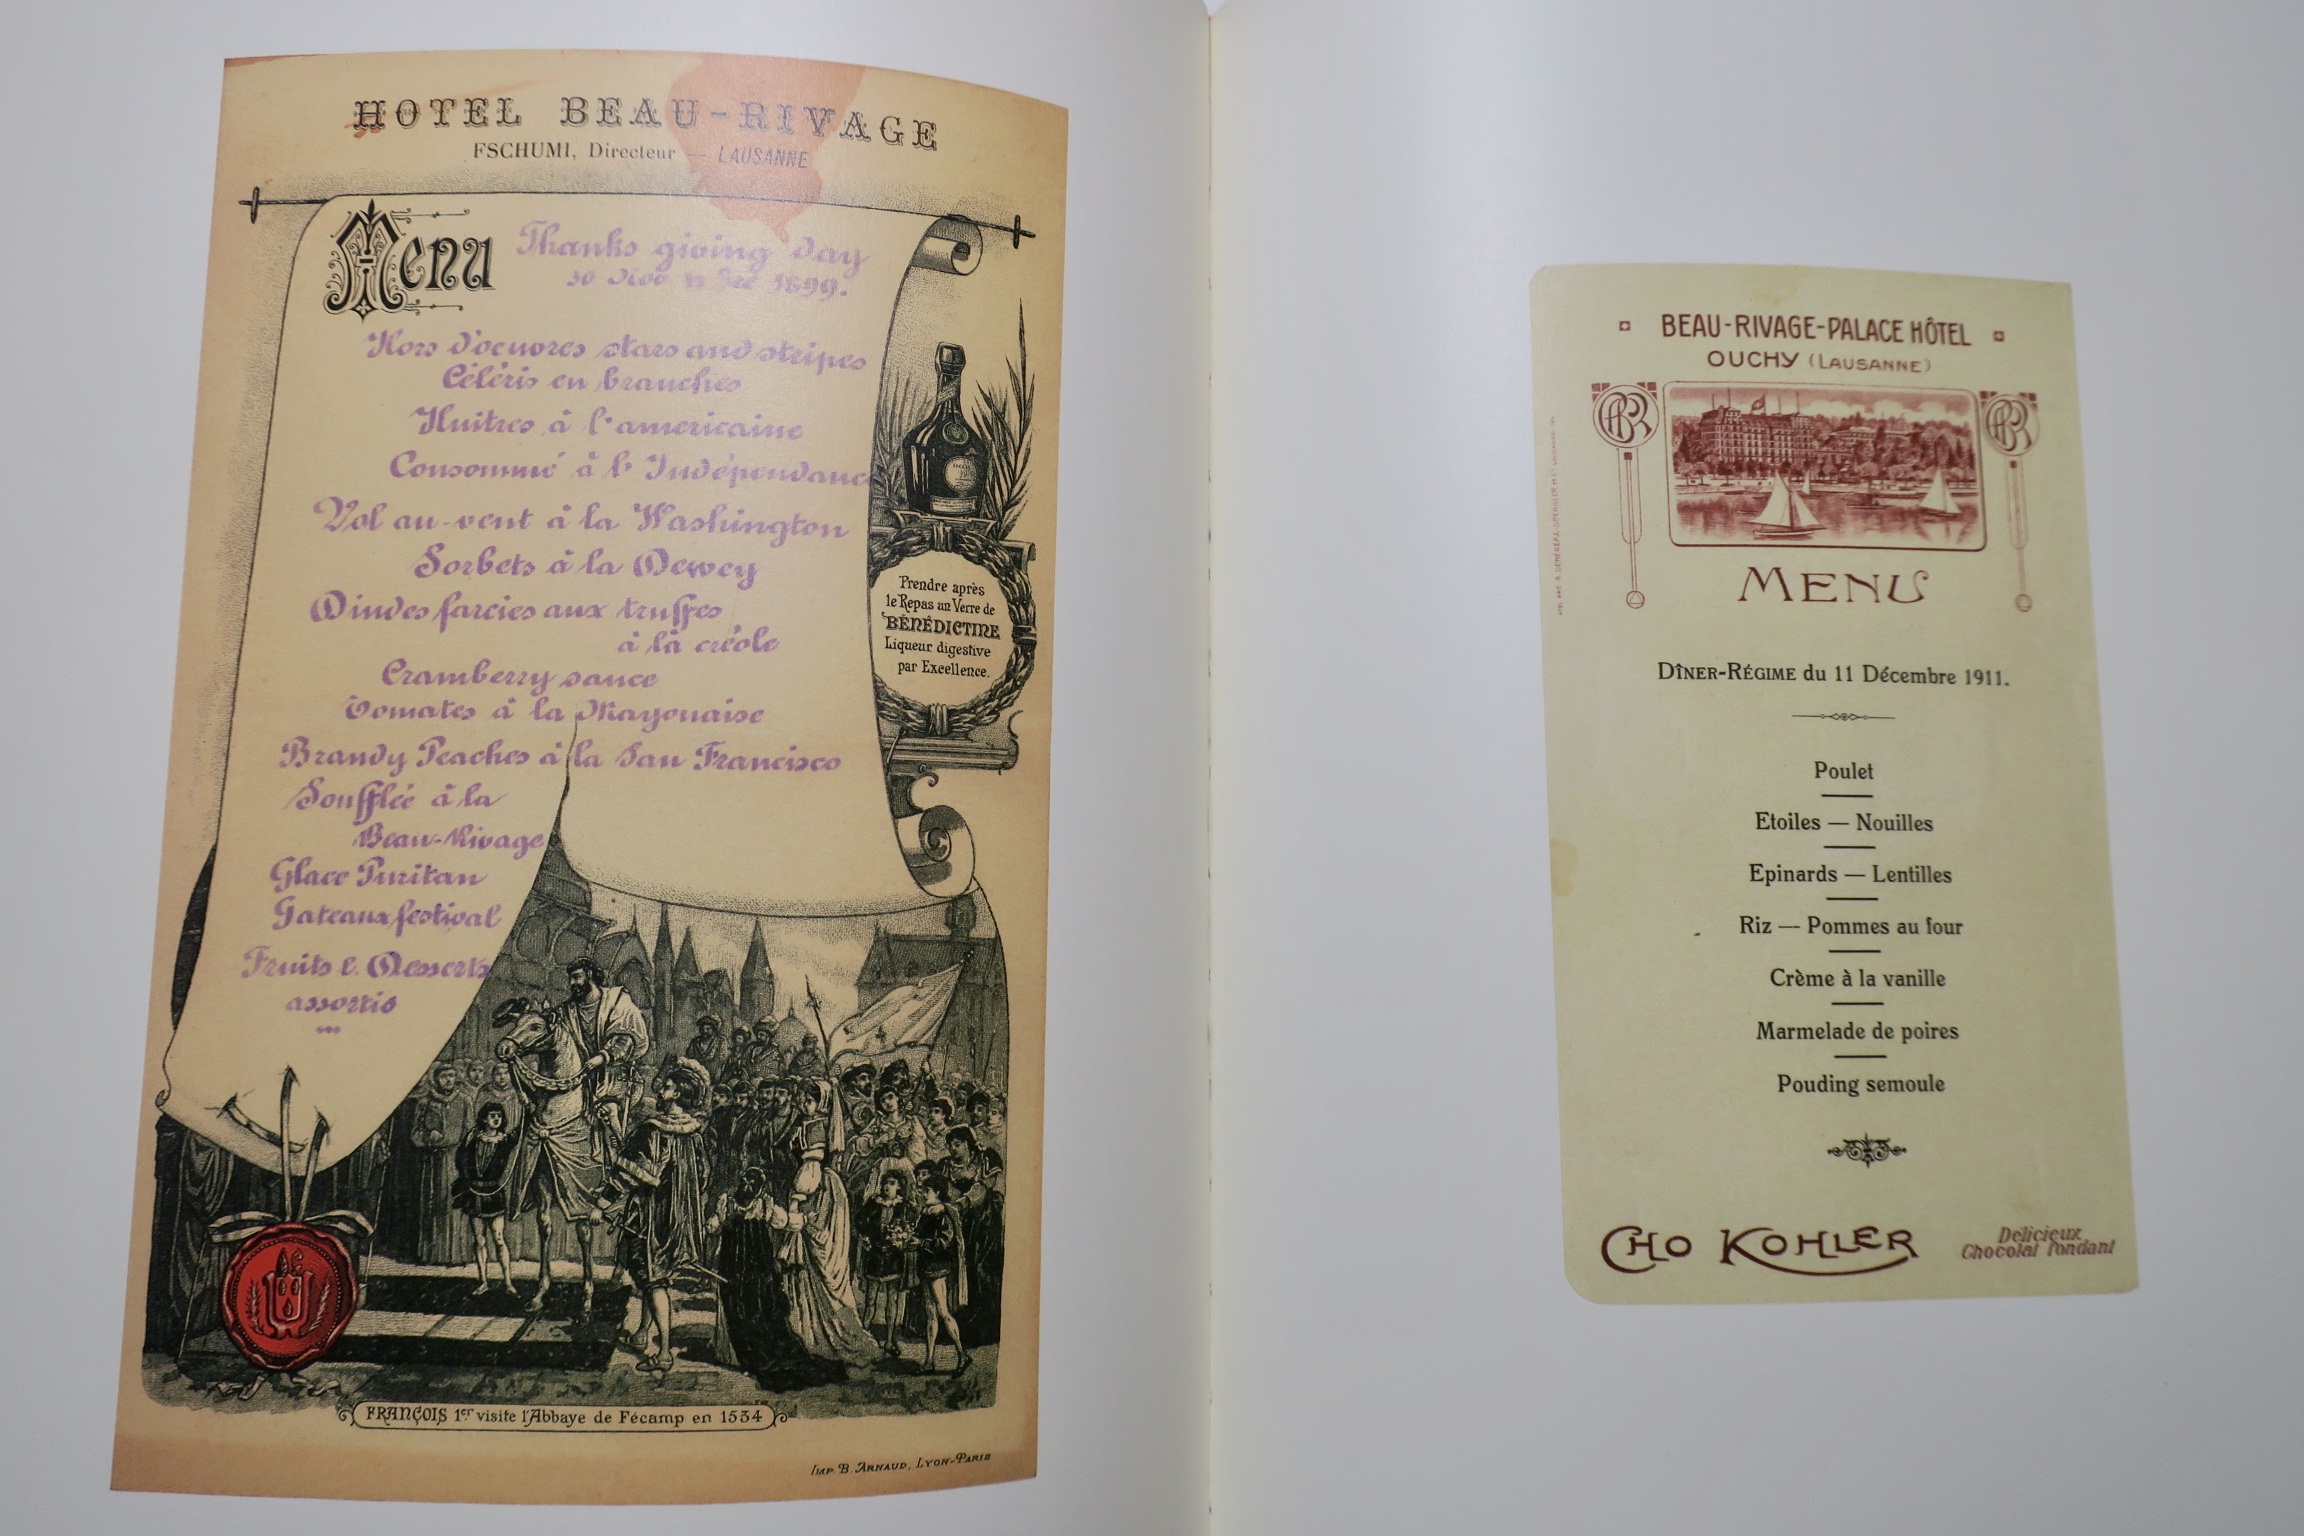 HOTEL BEAU-RIVAGE
FSCHUMI, Directeur — LAUSANNE
Menu
Thanks giving Day
30 Nov 1899.
Hors d'oeuvres stars and stripes
Céléris en branches
Huitres à l'americaine
Consommé à l'Indépendance
Vol au-vent à la Washington
Sorbets à la Dewey
Dindes farcies aux truffes
à la créole
Cramberry sauce
Tomates à la Mayonaise
Brandy Peaches à la San Francisco
Soufflée à la
Beau-Rivage
Glace Puritan
Gateaux festival
Fruits & Desserts
assortis
Prendre après
le Repas un Verre de
BÉNÉDICTINE
Liqueur digestive
par Excellence.
FRANÇOIS 1er visite l'Abbaye de Fécamp en 1534
IMP. B. ARNAUD, LYON-PARIS
BEAU-RIVAGE-PALACE HÔTEL
OUCHY (LAUSANNE)
MENU
DÎNER-RÉGIME du 11 Décembre 1911.
Poulet
Etoiles — Nouilles
Epinards — Lentilles
Riz — Pommes au four
Crème à la vanille
Marmelade de poires
Pouding semoule
CHO KOHLER
Délicieux
Chocolat fondant